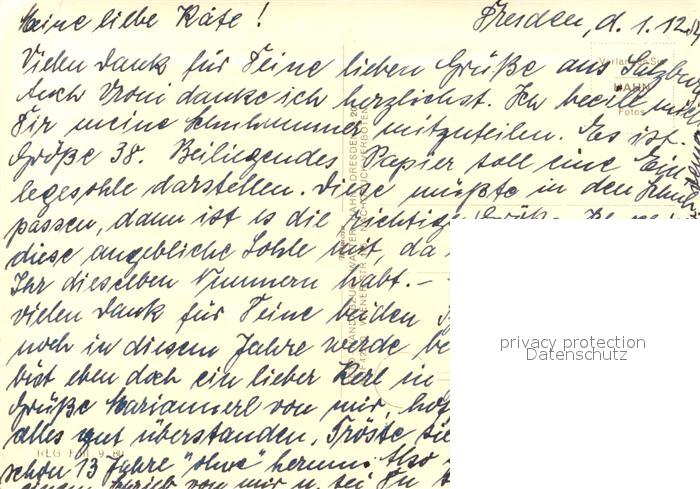 Meine liebe Käte! Dresden, d. 1.12.
Vielen Dank für Deine lieben Grüße aus Salzburg
Auch Vroni danke ich herzlichst. Ich beeile mich
Dir meine Schuhnummer mitzuteilen. Es ist
Größe 38. Beiliegendes Papier soll eine Ein-
legesohle darstellen. Diese müßte in den Schuh
passen, dann ist es die richtige
diese angebliche Sohle mit, da
Ihr dieselben Nummern habt. –
vielen Dank für Deine beiden
noch in diesem Jahre werde
bist eben doch ein lieber Kerl in
Grüße Mariannerl von mir,
alles gut überstanden. Tröste
schon 13 Jahre "ohne" herum. Also
von mir u. sei Du
Verlag
HAHN
Fotos
privacy protection
Datenschutz